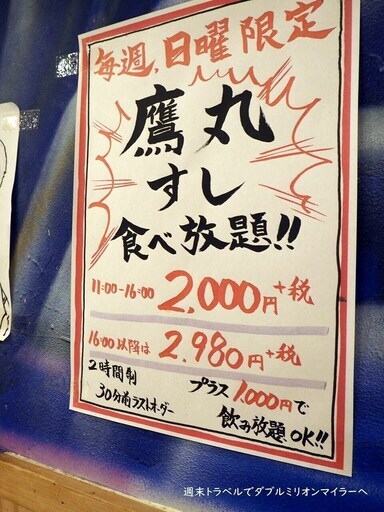 毎週、日曜限定
鷹丸
すし
食べ放題!!
11:00-16:00 2,000円+税
16:00以降は 2,980円+税
2時間制
30分前ラストオーダー
プラス1,000円で
飲み放題OK!!
週末トラベルでダブルミリオンマイラーへ